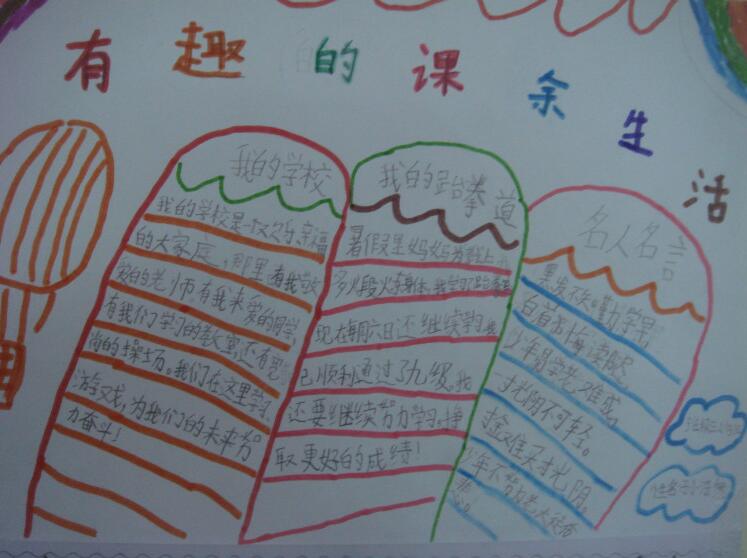 有趣的课余生活
我的学校
我的学校是一双欢乐、幸福
的大家庭，那里有我敬
爱的老师，有我亲爱的同学
有我们学习的教室，还有宽
尚的操场。我们在这里学习
游戏，为我们的未来努
力奋斗！
我的跆拳道
暑假里妈妈为我
现在每周六日还继续学习
已顺利通过了九级。我
还要继续努力学习，挣
取更好的成绩！
名人名言
黑发不知勤学早
白首方悔读书迟。
少年易学老难成，
一寸光阴不可轻。
难买寸光阴。
少年不努力老大徒伤
悲。